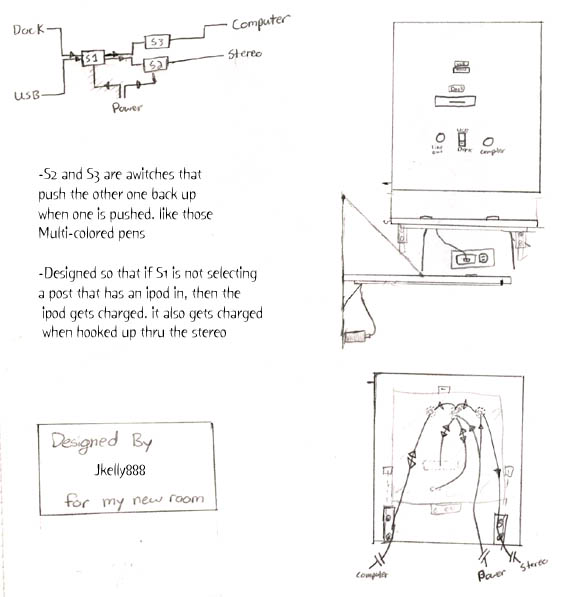 Dock
Computer
S1
S3
S2
Stereo
USB
Power
-S2 and S3 are awitches that
push the other one back up
when one is pushed. like those
Multi-colored pens
-Designed so that if S1 is not selecting
a post that has an ipod in, then the
ipod gets charged. it also gets charged
when hooked up thru the stereo
Designed By
Jkelly888
for my new room
Dock
USB
Dock
computer
computer
Power
Stereo